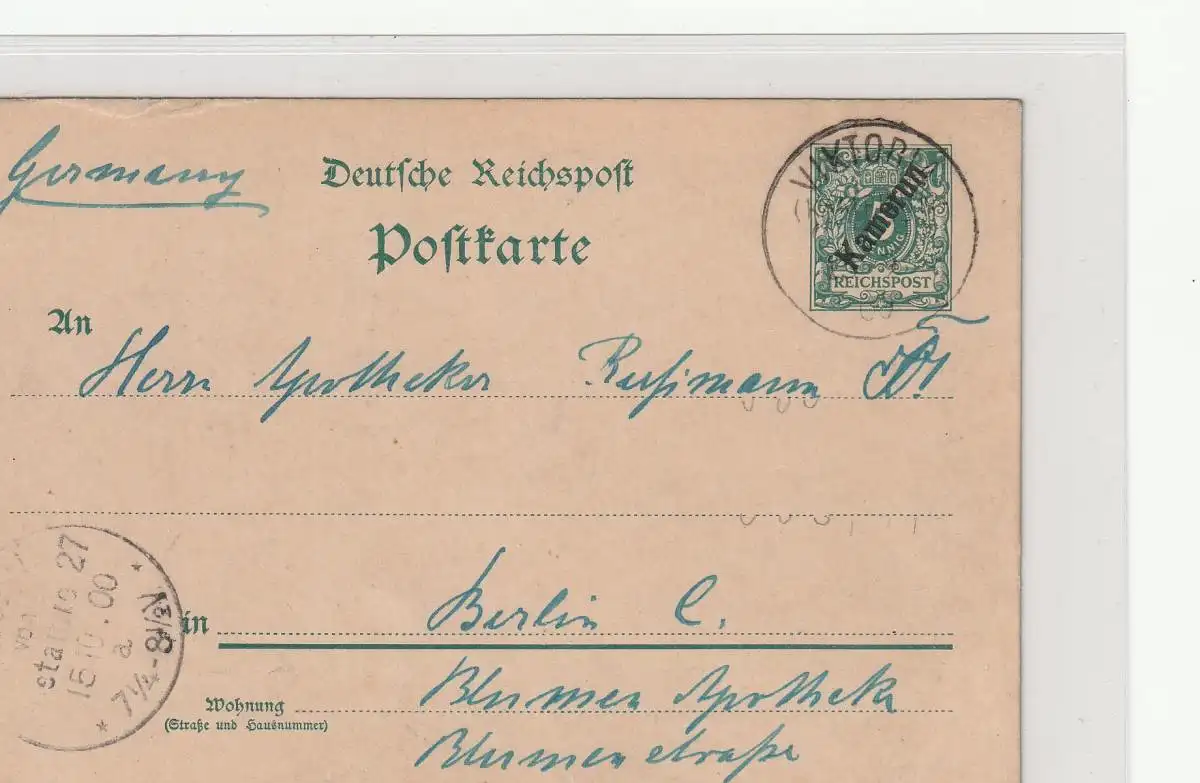 Germany
Deutsche Reichspost
Postkarte
VIKTORIA
5
Kamerun
REICHSPOST
An
Herrn Apotheker
in
Berlin C.
Wohnung
(Straße und Hausnummer)
Blumen Apotheke
Blumenstraße
27
15.10.00
a
7¼-8½V